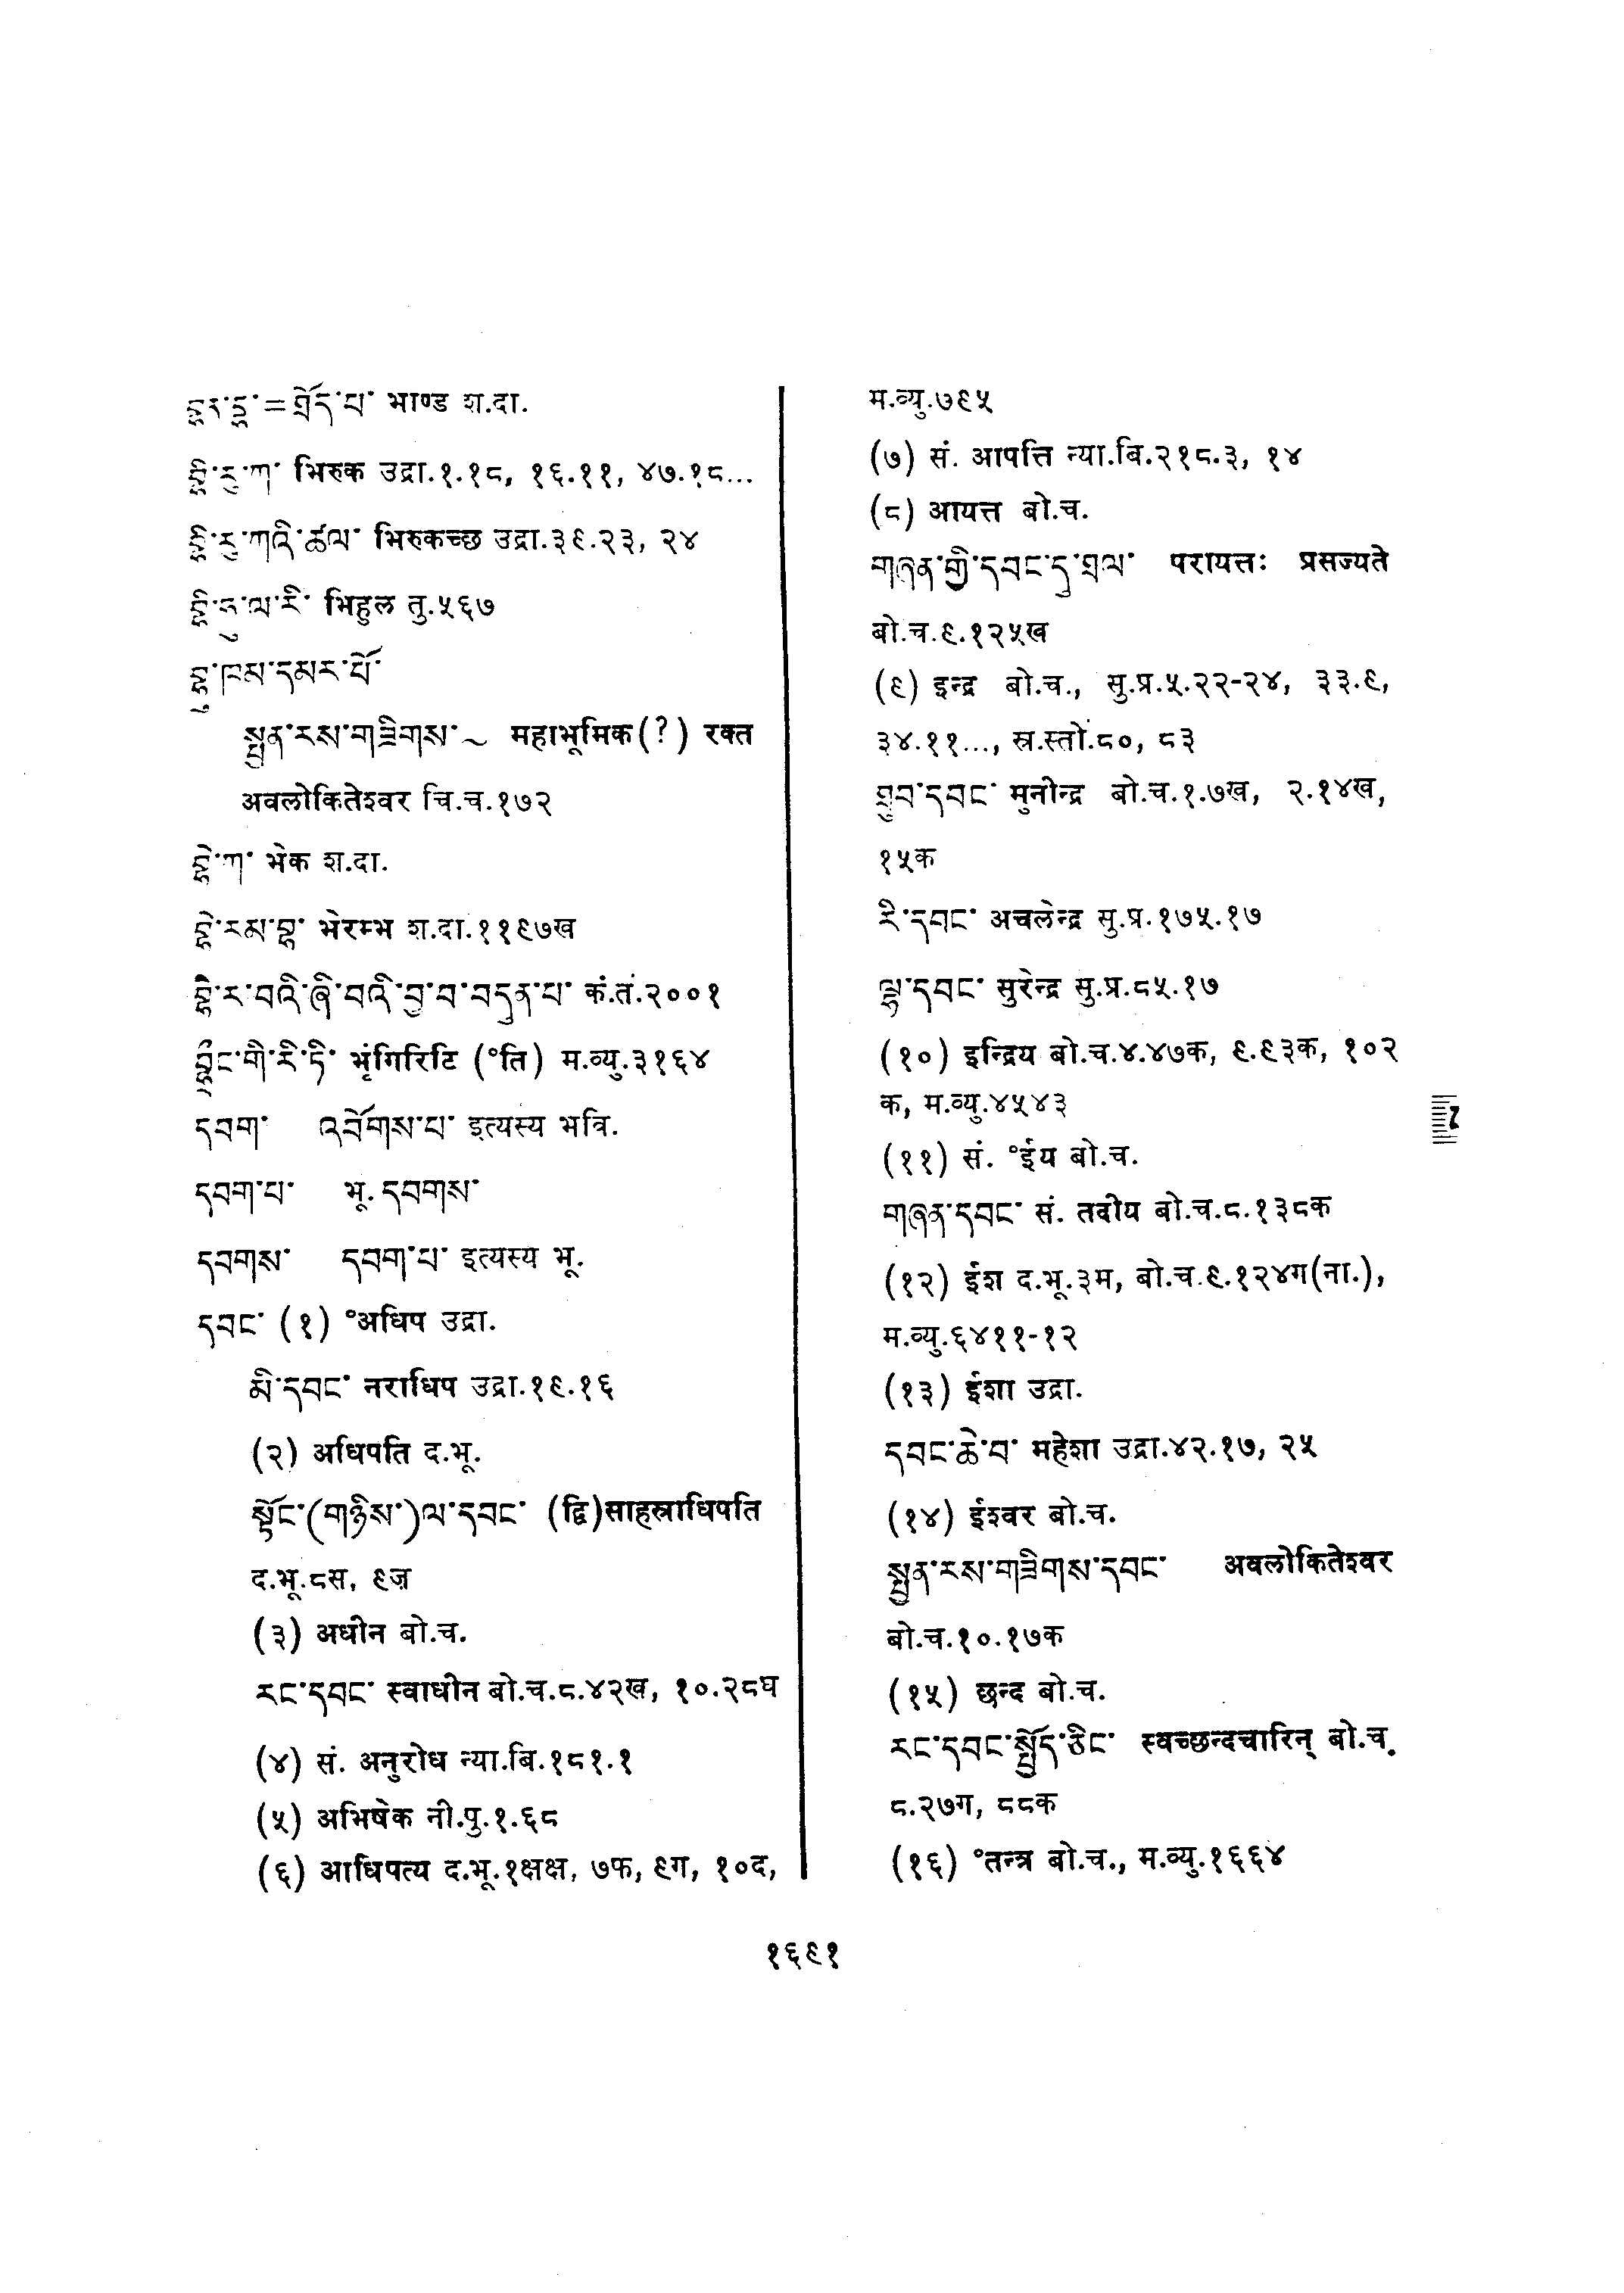 བྷར་ཌ་=གྲོད་པ་ भाण्ड श.दा.
བྷི་རུ་ཀ་ भिरुक उद्रा.१.१८, १६.११, ४७.१८...
བྷི་རུ་ཀའི་ཚལ་ भिरुकच्छ उद्रा.३९.२३, २४
བྷི་ཧུ་ལ་རི་ भिहुल तु.५६७
བྷུ་ཁམ་དམར་པོ་
སྤྱན་རས་གཟིགས་~ महाभूमिक(?) रक्त
अवलोकितेश्वर चि.च.१७२
བྷེ་ཀ་ भेक श.दा.
བྷེ་རམ་བྷ་ भेरम्भ श.दा.११९७ख
བྷི་ར་བའི་ཞི་བའི་བྱ་བ་བདུན་པ་ कं.तं.२००१
བྷྲྀང་གི་རི་ཏི་ भृंगिरिटि (°ति) म.व्यु.३१६४
དབག་ འབོགས་པ་ इत्यस्य भवि.
དབག་པ་ भू. དབགས་
དབགས་ དབག་པ་ इत्यस्य भू.
དབང་ (१) °अधिप उद्रा.
མི་དབང་ नराधिप उद्रा.१९.१६
(२) अधिपति द.भू.
སྟོང་(གཉིས་)ལ་དབང་ (द्वि)साहस्राधिपति
द.भू.८स, ९ज्ञ
(३) अधीन बो.च.
རང་དབང་ स्वाधीन बो.च.८.४२ख, १०.२८घ
(४) सं. अनुरोध न्या.बि.१८१.१
(५) अभिषेक नी.पु.१.६८
(६) आधिपत्य द.भू.१क्षक्ष, ७फ, ९ग, १०द,
म.व्यु.७९५
(७) सं. आपत्ति न्या.बि.२१८.३, १४
(८) आयत्त बो.च.
གཞན་གྱི་དབང་དུ་གྲལ་ परायत्तः प्रसज्यते
बो.च.९.१२५ख
(९) इन्द्र बो.च., सु.प्र.५.२२-२४, ३३.९,
३४.११..., स्र.स्तो.८०, ८३
ཐུབ་དབང་ मुनीन्द्र बो.च.१.७ख, २.१४ख,
१५क
རི་དབང་ अचलेन्द्र सु.प्र.१७५.१७
ལྷ་དབང་ सुरेन्द्र सु.प्र.८५.१७
(१०) इन्द्रिय बो.च.४.४७क, ९.९३क, १०२
क, म.व्यु.४५४३
(११) सं. °ईय बो.च.
གཞན་དབང་ सं. तदीय बो.च.८.१३८क
(१२) ईश द.भू.३म, बो.च.९.१२४ग(ना.),
म.व्यु.६४११-१२
(१३) ईशा उद्रा.
དབང་ཆེ་བ་ महेशा उद्रा.४२.१७, २५
(१४) ईश्वर बो.च.
སྤྱན་རས་གཟིགས་དབང་ अवलोकितेश्वर
बो.च.१०.१७क
(१५) छन्द बो.च.
རང་དབང་སྤྱོད་ཅིང་ स्वच्छन्दचारिन् बो.च.
८.२७ग, ८८क
(१६) °तन्त्र बो.च., म.व्यु.१६६४
१६९१